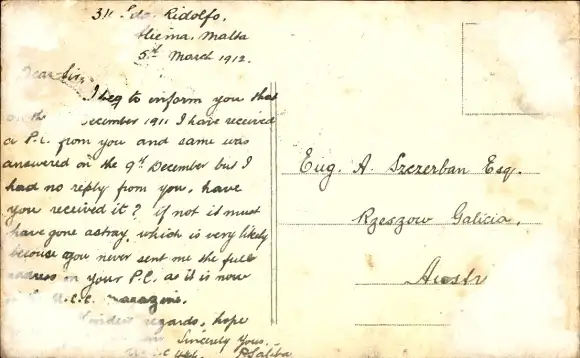 311 Sda. Ridolfo,
Sliema, Malta
5th March 1912.
Dear Sir,
I beg to inform you that
on the December 1911 I have received
a P.C. from you and same was
answered on the 9th December but I
had no reply from you, have
you received it? if not it must
have gone astray, which is very likely
because you never sent me the full
address on your P.C. as it is now
U.C.C. magazine.
Kindest regards, hope
Sincerely Yours.
Eug. A. Szczerban Esq.
Rzeszow Galicia,
Austr